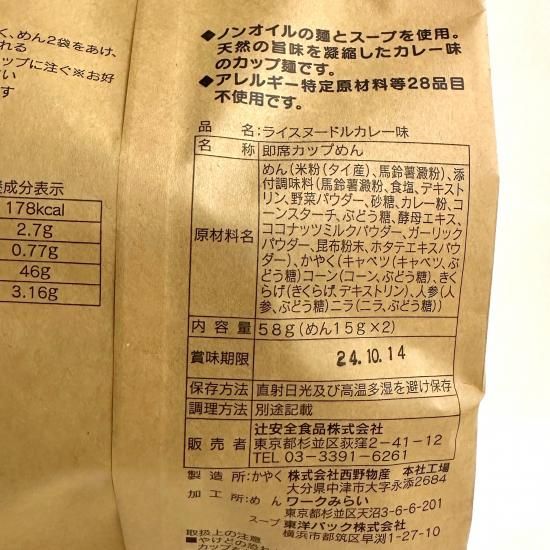 く、めん2袋をあけ、
れる
ップに注ぐ※お好
さい
す
養成分表示
178kcal
2.7g
0.77g
46g
3.16g
◆ノンオイルの麺とスープを使用。
天然の旨味を凝縮したカレー味
のカップ麺です。
◆アレルギー特定原材料等28品目
不使用です。
品名:ライスヌードルカレー味
名称 即席カップめん
原材料名
めん(米粉(タイ産)、馬鈴薯澱粉)、添
付調味料(馬鈴薯澱粉、食塩、デキスト
リン、野菜パウダー、砂糖、カレー粉、コ
ーンスターチ、ぶどう糖、酵母エキス、
ココナッツミルクパウダー、ガーリック
パウダー、昆布粉末、ホタテエキスパウ
ダー)、かやく(キャベツ(キャベツ、ぶ
どう糖)コーン(コーン、ぶどう糖)、きく
らげ(きくらげ、デキストリン)、人参(人
参、ぶどう糖)ニラ(ニラ、ぶどう糖))
内容量 58g(めん15g×2)
賞味期限 24.10.14
保存方法 直射日光及び高温多湿を避け保存
調理方法 別途記載
販売者
辻安全食品株式会社
東京都杉並区荻窪2-41-12
TEL 03-3391-6261
製造所:かやく 株式会社西野物産 本社工場
大分県中津市大字永添2684
加工所:めん ワークみらい
東京都杉並区天沼3-6-6-201
スープ 東洋パック株式会社
横浜市都筑区早渕1-27-10
取扱上の注意
■やけどの恐れ